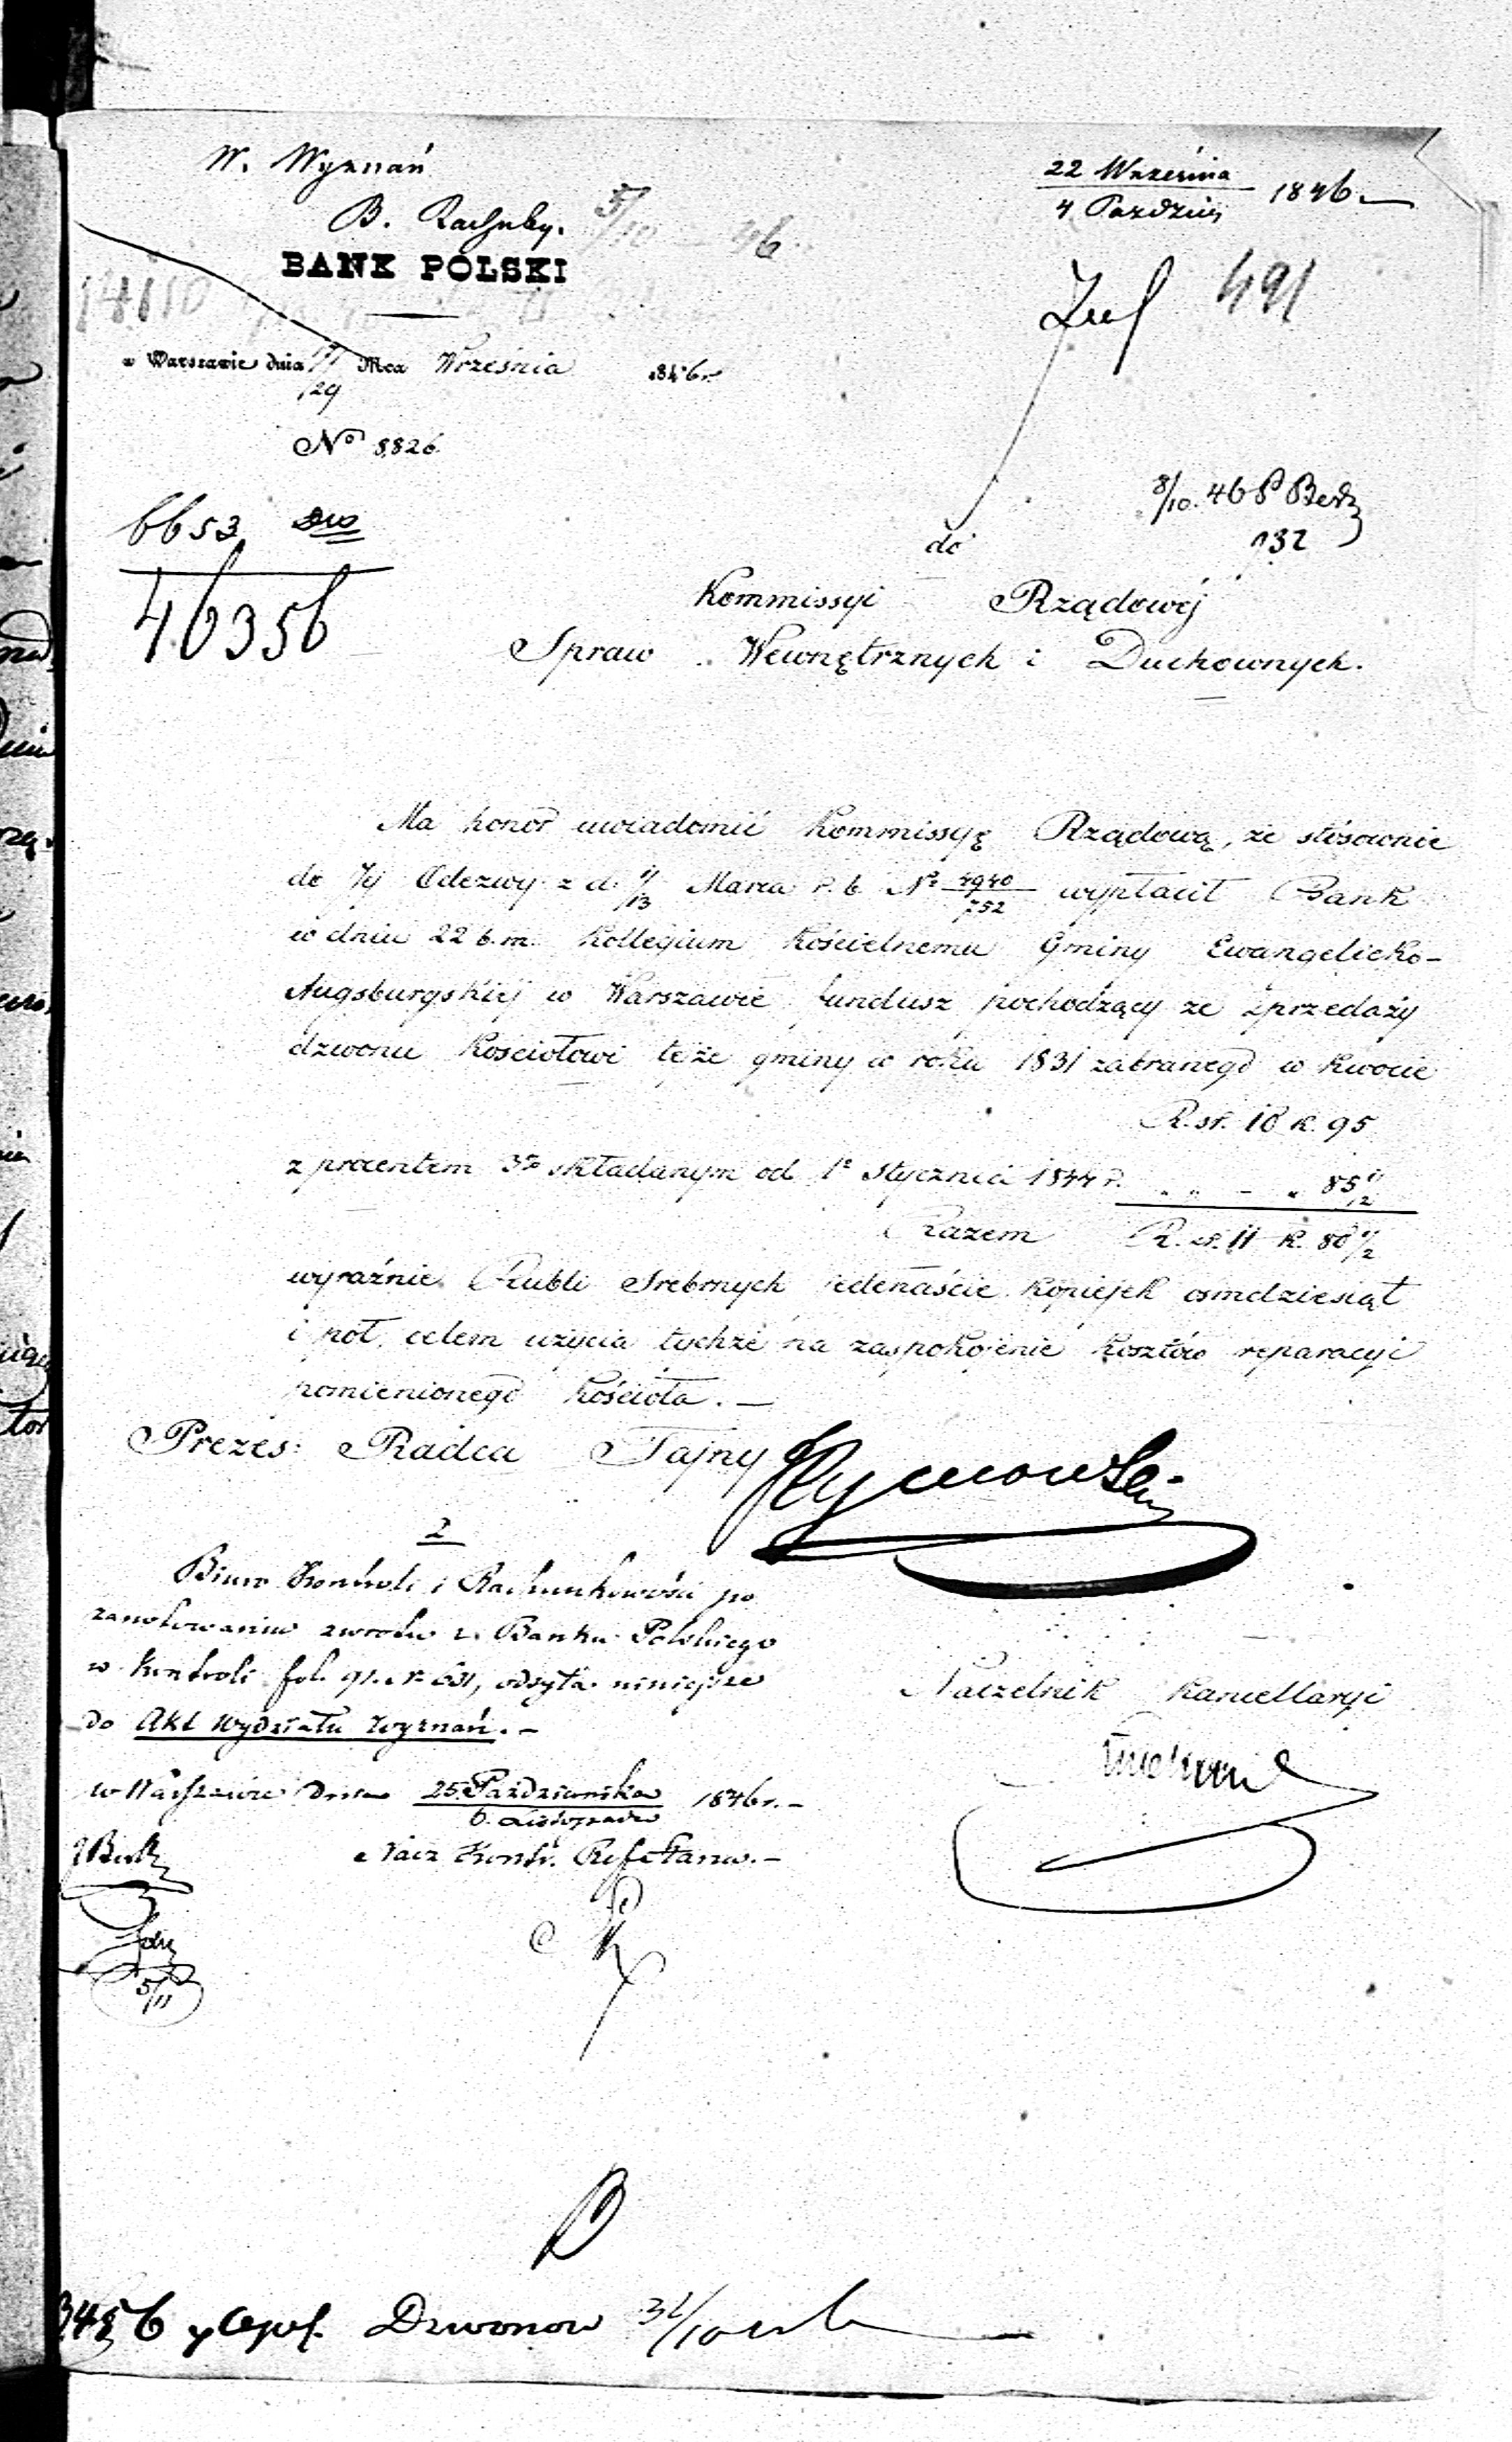 W. Wyznań
B. Rachuby.
22 Września
4 Paździer 1846
BANK POLSKI
491
w Warszawie dnia 17/29 Mca Września 1846 r.
No 8826.
6653
46356
8/10. 46
132
do
Kommissyi Rządowéj
Spraw Wewnętrznych i Duchownych.
Ma honor uwiadomić Kommissyę Rządową, że stósownie
do Jéj Odezwy z d. 1/13 Marca r. b. No 4940/752 wypłacił Bank
w dniu 22 b. m. Kollegium Kościelnemu Gminy Ewangelicko-
Augsburgskiéj w Warszawie fundusz pochodzący ze sprzedaży
dzwonu Kościołowi tejże gminy w roku 1831 zabranego w kwocie
R. sr. 10 k. 95
z procentem 3% składanym od 1o Stycznia 1844 r. „ „ - „ 85 1/2
Razem R. sr. 11 k. 80 1/2
wyraźnie Rubli Srebrnych jedenaście kopiejek ośmdziesiąt
i pół, celem użycia tychże na zaspokojenie kosztów reparacyi
pomienionego Kościoła. —
Prezes: Radca Tajny
2
Biuro Kontroli i Rachunkowości po
zanotowaniu zwrotu z Banku Polskiego
w Kontroli fol. 91. No 631, odsyła niniejsze
do Akt Wydziału Wyznań. -
Naczelnik Kancellaryi
w Warszawie Dnia 25 Października / 6. Listopada 1846 r. -
Nacz Kontr.
5/11
Dzwonow